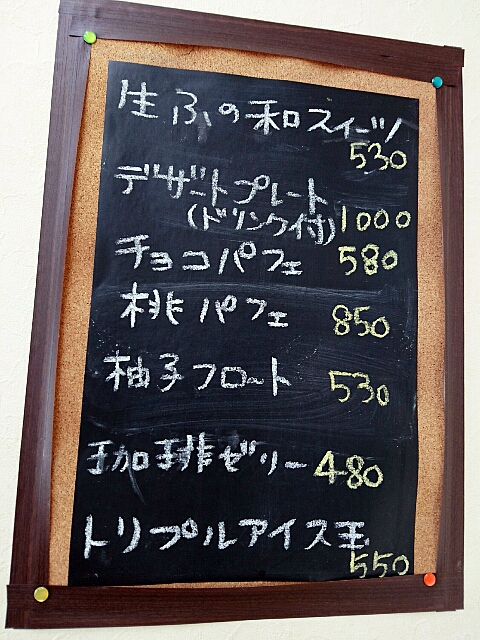 生ふの和スイーツ
530
デザートプレート
(ドリンク付) 1000
チョコパフェ 580
桃パフェ 850
柚子フロート 530
珈琲ゼリー 480
トリプルアイス玉
550